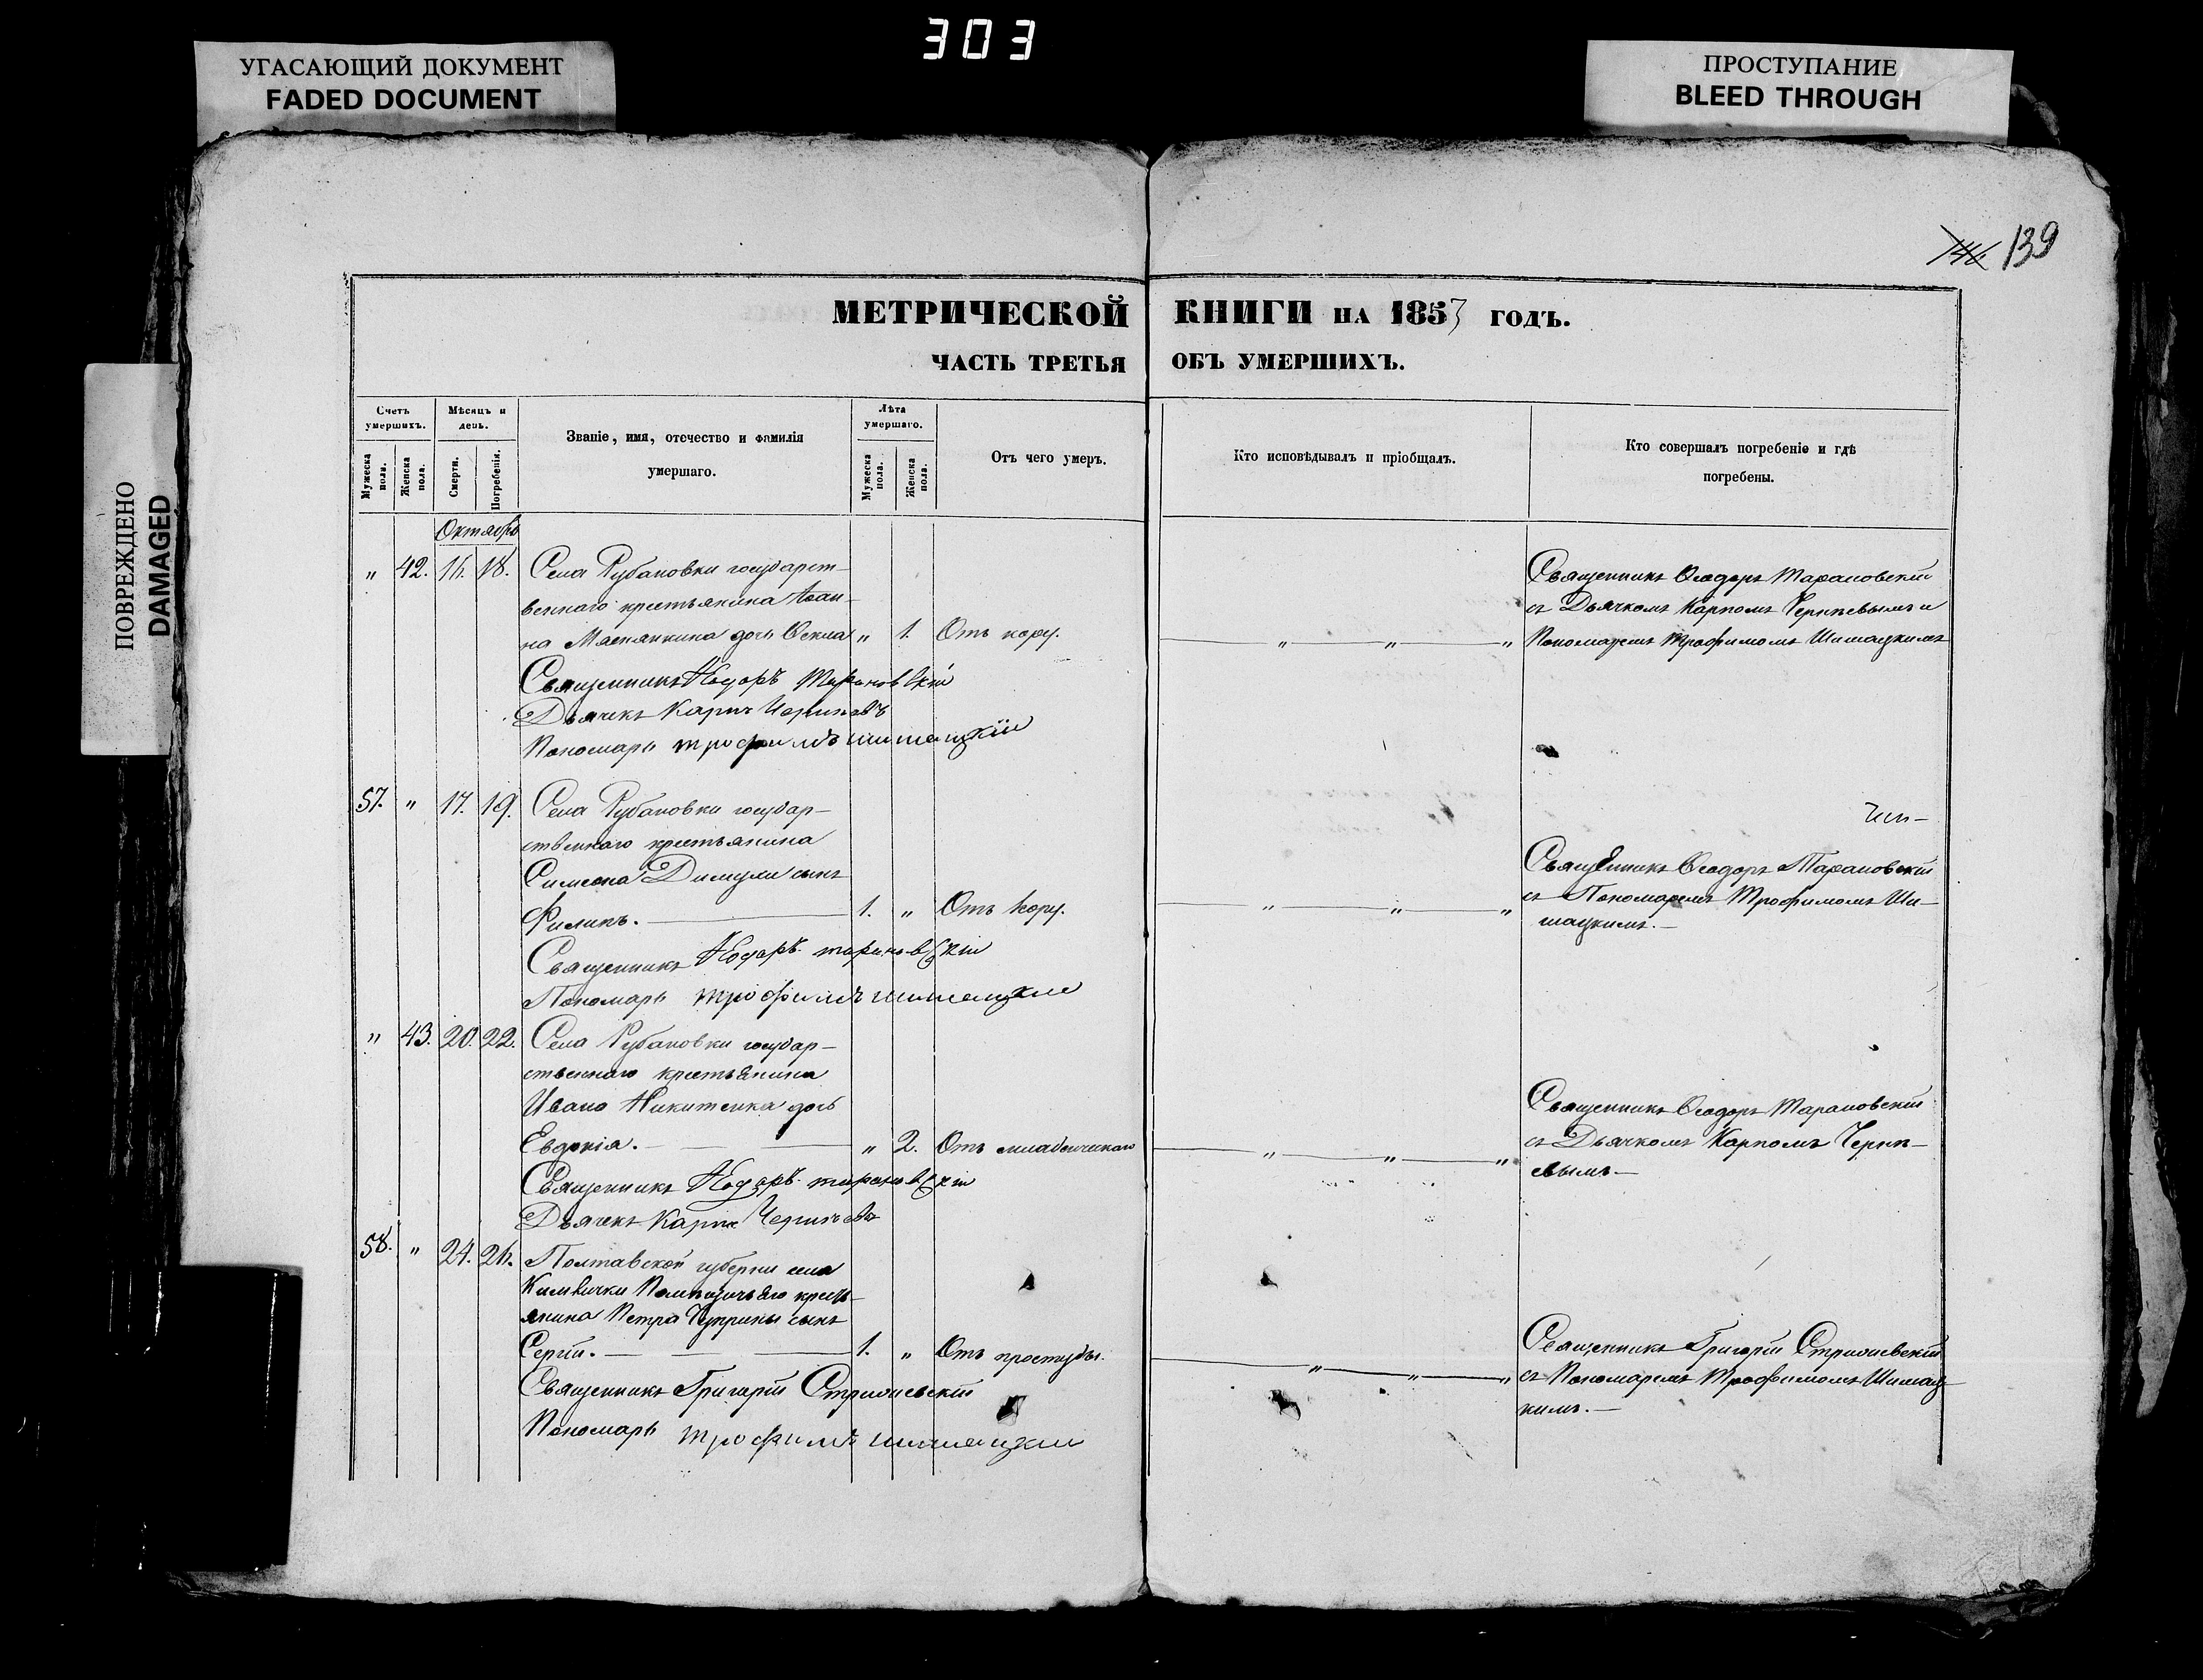 303
УГАСАЮЩИЙ ДОКУМЕНТ
FADED DOCUMENT
ПРОСТУПАНИЕ
BLEED THROUGH
ПОВРЕЖДЕНО
DAMAGED
139
МЕТРИЧЕСКОЙ КНИГИ НА 1857 ГОДЪ.
ЧАСТЬ ТРЕТЬЯ ОБЪ УМЕРШИХЪ.
Счетъ умершихъ.
Мужеска пола.
Женска пола.
Мѣсяцъ и день.
Смерти.
Погребенія.
Званіе, имя, отечество и фамилія
умершаго.
Лѣта умершаго.
Мужеска пола.
Женска пола.
Отъ чего умеръ.
Кто исповѣдывалъ и пріобщалъ.
Кто совершалъ погребеніе и гдѣ
погребены.
Октябрь
„ 42. 16. 18. Села Рубановки государст-
веннаго крестьянина Іоан-
на дочь Фекла „ 1. Отъ кору. „ „ „
Священникъ Ѳеодоръ Тарановскій
съ Дьячкомъ Карпомъ и
Пономаремъ Трофимомъ Шишацкимъ
Священникъ Ѳеодоръ Тарановскій
Дьячекъ Карпъ
Пономарь Трофимъ Шишацкій
57. „ 17. 19. Села Рубановки государ-
ственнаго крестьянина
Симеона сынъ
Филипъ. 1. „ Отъ кору. „ „ „
Священникъ Ѳеодоръ Тарановскій
съ Пономаремъ Трофимомъ Ши-
шацкимъ.
Священникъ Ѳеодоръ Тарановскій
Пономарь Трофимъ Шишацкій
„ 43. 20. 22. Села Рубановки государ-
ственнаго крестьянина
Ивана Никитенка дочь
Евдокія. „ 2. Отъ младенческаго „ „ „
Священникъ Ѳеодоръ Тарановскій
съ Дьячкомъ Карпомъ
Священникъ Ѳеодоръ Тарановскій
Дьячекъ Карпъ
58. „ 24. 26. Полтавской губерніи села
крестья-
янина Петра Чуприны сынъ
Сергій. 1. „ Отъ простуды. „ „ „
Священникъ Григорій
съ Пономаремъ Трофимомъ Шишац-
кимъ.
Священникъ Григорій
Пономарь Трофимъ Шишацкій